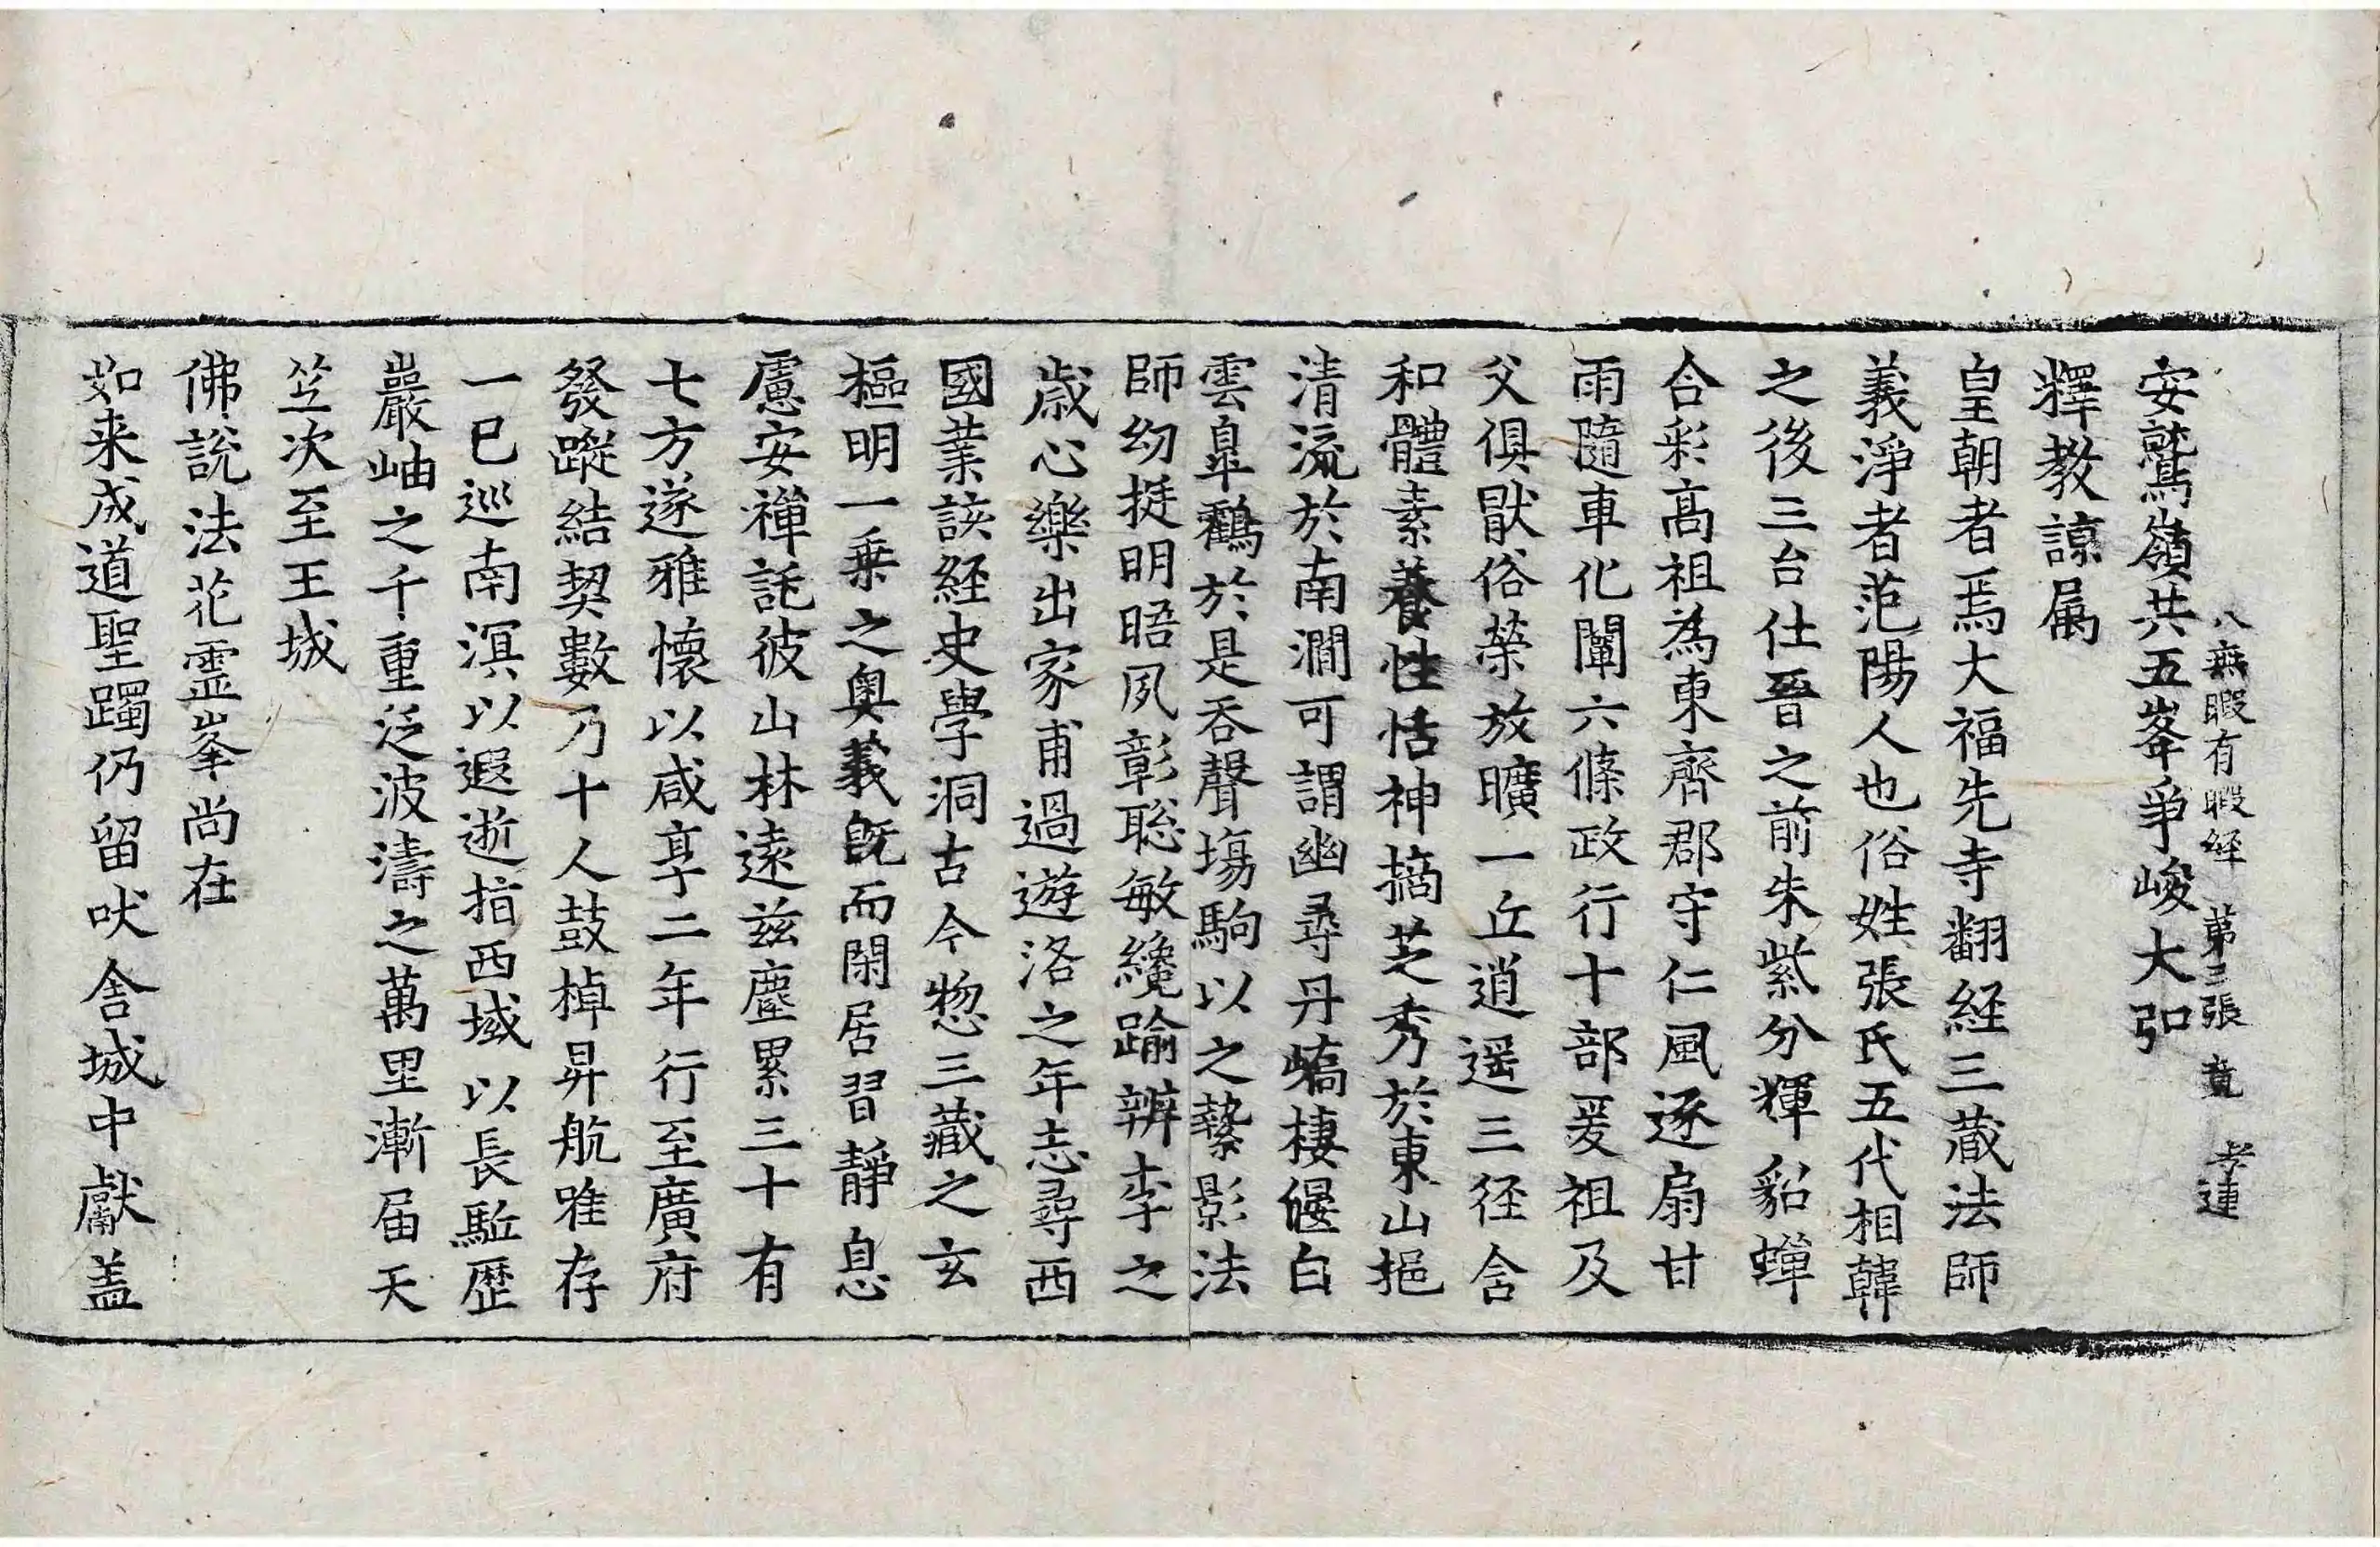 八無暇有暇経 第三張 竟 孝連
安鷲嶺共五峯爭峻大弘
釋教諒属
皇朝者焉大福先寺翻経三蔵法師
義淨者范陽人也俗姓張氏五代相韓
之後三台仕晉之前朱紫分輝貂蟬
合彩髙祖為東齊郡守仁風逐扇甘
雨隨車化闡六條政行十部爰祖及
父俱猒俗榮放曠一丘逍遥三径含
和體素養性恬神摘芝秀於東山挹
清流於南澗可謂幽尋丹嶠棲偃白
雲臯鸖於是吞聲塲駒以之縶影法
師幼挺明晤夙彰聡敏纔踰辨李之
歳心樂出家甫過遊洛之年志尋西
國業該経史學洞古今惣三藏之玄
樞明一乗之奥義旣而閑居習靜息
慮安禪託彼山林遠茲塵累三十有
七方遂雅懷以咸亨二年行至廣府
發蹤結契數乃十人鼓棹昇航唯存
一已巡南溟以遐逝指西域以長駈歴
巖岫之千重泛波濤之萬里漸届天
竺次至王城
佛說法花靈峯尚在
如来成道聖躅仍留吠舍城中獻盖